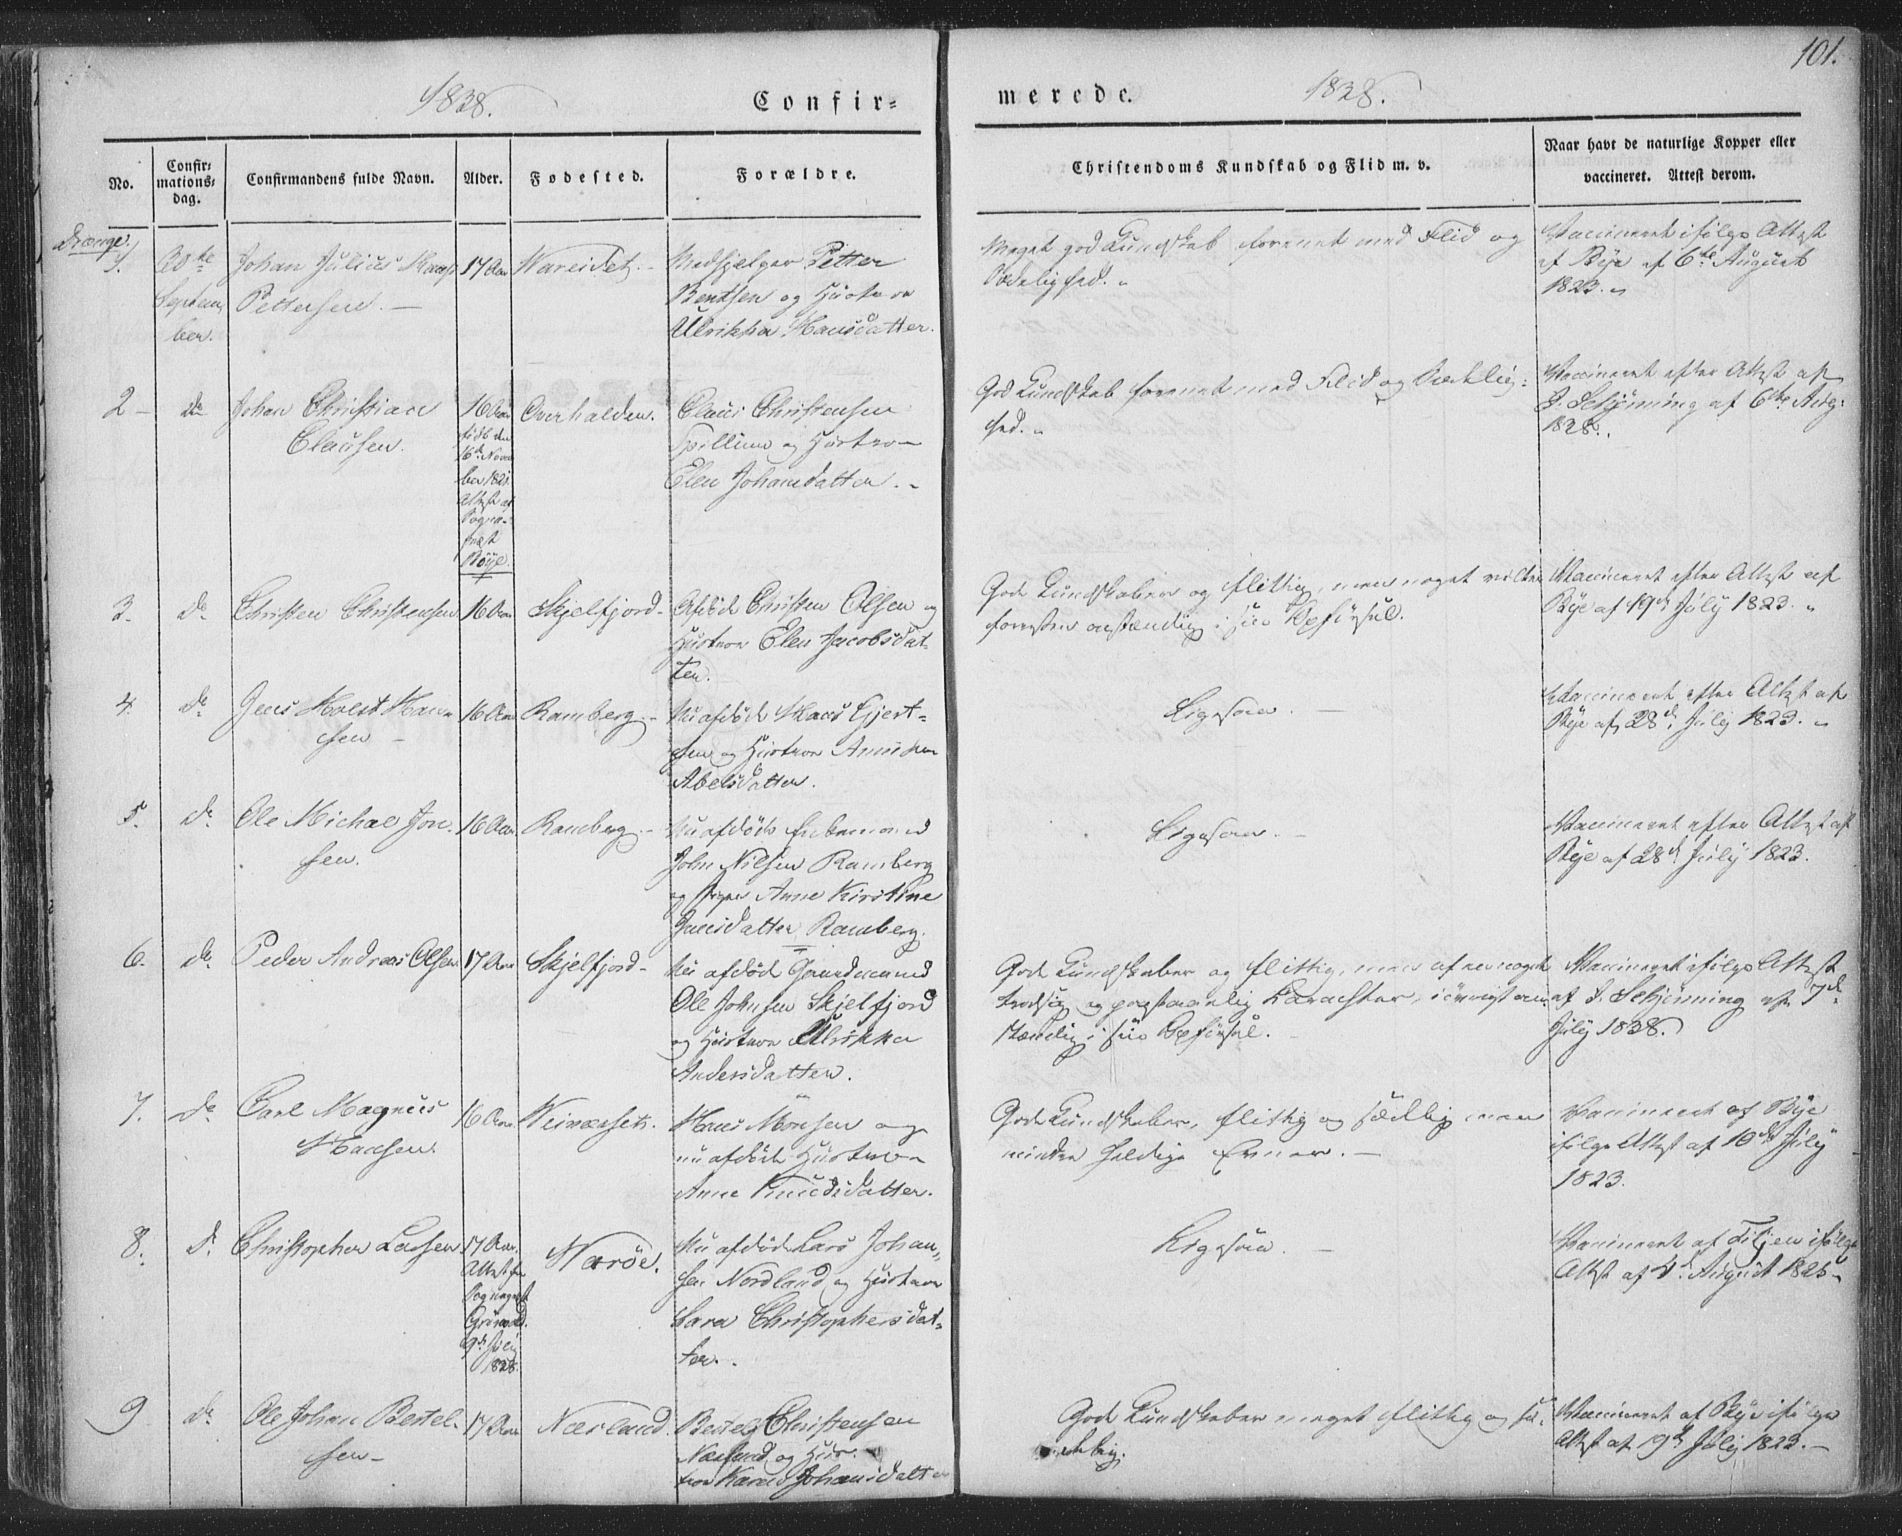 101.
1838. Confir= merede. 1838.
No.
Confir=
mations=
dag.
Confirmandens fulde Navn.
Alder.
Fødested.
Forældre.
Christendoms Kundskab og Flid m. v.
Naar havt de naturlige Kopper eller
vaccineret. Attest derom.
Drænge.
1.
Septem
ber.
Johan Julius
Pettersen. —
17 Aar
Medhjelper Petter
Bentsen og Hustroe
Ulrikka Hansdatter.
Meget god Kundskab forenet med Flid og
Sædelighed.
Vaccineret ifølge Attest
af Bye af 6te August
1823.
2 —
de
Johan Christian
Clausen.
16 Aar
født den
16de Novem
ber 1821
Attest af
Sogne-
præst
Bøye.
Overhalden.
Claus Christensen
Spillum og Hustroe
Elen Johansdatter.
God Kundskab forenet med Flid og Sædelig=
hed.
Vaccineret efter Attest af
S. Schjerning af 6te Aug:
1838.
3.
de
Christen Christensen
16 Aar
Skjelfjord
Afdøde Christen Olsen og
Hustroe Elen Jacobsdat-
ter.
God Kundskaber og flittig, men noget
forresten anstændig i sin Opførsel.
Vaccineret efter Attest af
Bye af 19de July 1823.
4.
de
Jens Holst Han-
sen
16 Aar
Ramberg.
Nu afdøde Hans Gjert-
sen og Hustroe Anniken
Abelsdatter.
Ligesaa.
Vaccineret efter Attest af
Bye af 28de July 1823.
5.
de
Ole Michal Jon-
sen.
16 Aar
Ramberg.
Nu afdøde
John Nilsen Ramberg
og Anne Kirstine
Jensdatter Ramberg.
Ligesaa.
Vaccineret efter Attest af
Bye af 28de July 1823.
6.
de
Peder Andreas Olsen
17 Aar
Skjelfjord
Nu afdød Gaardmand
Ole Johnsen Skjelfjord
og Hustroe Ulrikka
Andersdatter.
God Kundskaber og flittig, men af en noget
trodsig og Karachter, iøvrigt an-
stændig i sin Opførsel.
Vaccineret ifølge Attest
af S. Schjerning af 7de
July 1838.
7.
de
Carl Magnus
Hansen.
16 Aar
Hans Monsen og
nu afdøde Hustroe
Anne Knudsdatter.
God Kundskaber, flittig og sædelig men
mindre heldige Evner. —
Vaccineret af Bye
ifølge Attest af 10de July
1823.
8.
de
Christopher Larsen
17 Aar.
Attest fra
Sognepræst
9de July
1838.
Nærøe.
Nu afdøde Lars Johan-
sen Nordland og Hustroe
Sara Christophersdat-
ter.
Ligesaa. —
Vaccineret af ifølge
Attest af 4de August 1825
9
de
Ole Johan Bertel-
sen —
17 Aar
Nærland.
Bertel Christensen
Nærland og Hus-
troe Karen Johansdatter
God Kundskaber meget flittig og sæ-
delig.
Vaccineret af Bye ifølge
Attest af 19de July 1823. —